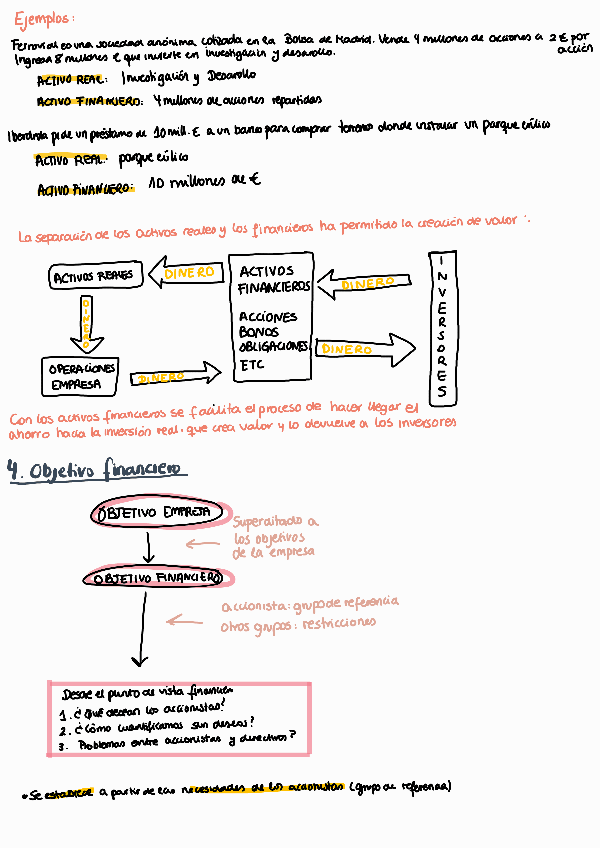 Ejemplos:
Ferrovial es una sociedad anónima cotizada en la Bolsa de Madrid. Vende 4 millones de acciones a 2€ por acción
Ingresa 8 millones € que invierte en investigación y desarrollo.
ACTIVO REAL: Investigación y Desarrollo
ACTIVO FINANCIERO: 4 millones de acciones repartidas
Iberdrola pide un préstamo de 10 mill. € a un banco para comprar terreno donde instalar un parque eólico
ACTIVO REAL: parque eólico
ACTIVO FINANCIERO: 10 millones de €
La separación de los activos reales y los financieros ha permitido la creación de valor:
ACTIVOS REALES
DINERO
ACTIVOS
FINANCIEROS
ACCIONES
BONOS
OBLIGACIONES
ETC
DINERO
INVERSORES
DINERO
DINERO
OPERACIONES
EMPRESA
DINERO
Con los activos financieros se facilita el proceso de hacer llegar el
ahorro hacia la inversión real, que crea valor y lo devuelve a los inversores
4. Objetivo financiero
OBJETIVO EMPRESA
Supeditado a
los objetivos
de la empresa
OBJETIVO FINANCIERO
accionista: grupo de referencia
otros grupos: restricciones
Desde el punto de vista financier
1. ¿Qué desean los accionistas?
2. ¿Cómo cuantificamos sun deseos?
3. Problemas entre accionistas y directivos?
• Se establece a partir de las necesidades de los accionistas (grupo de referencia)